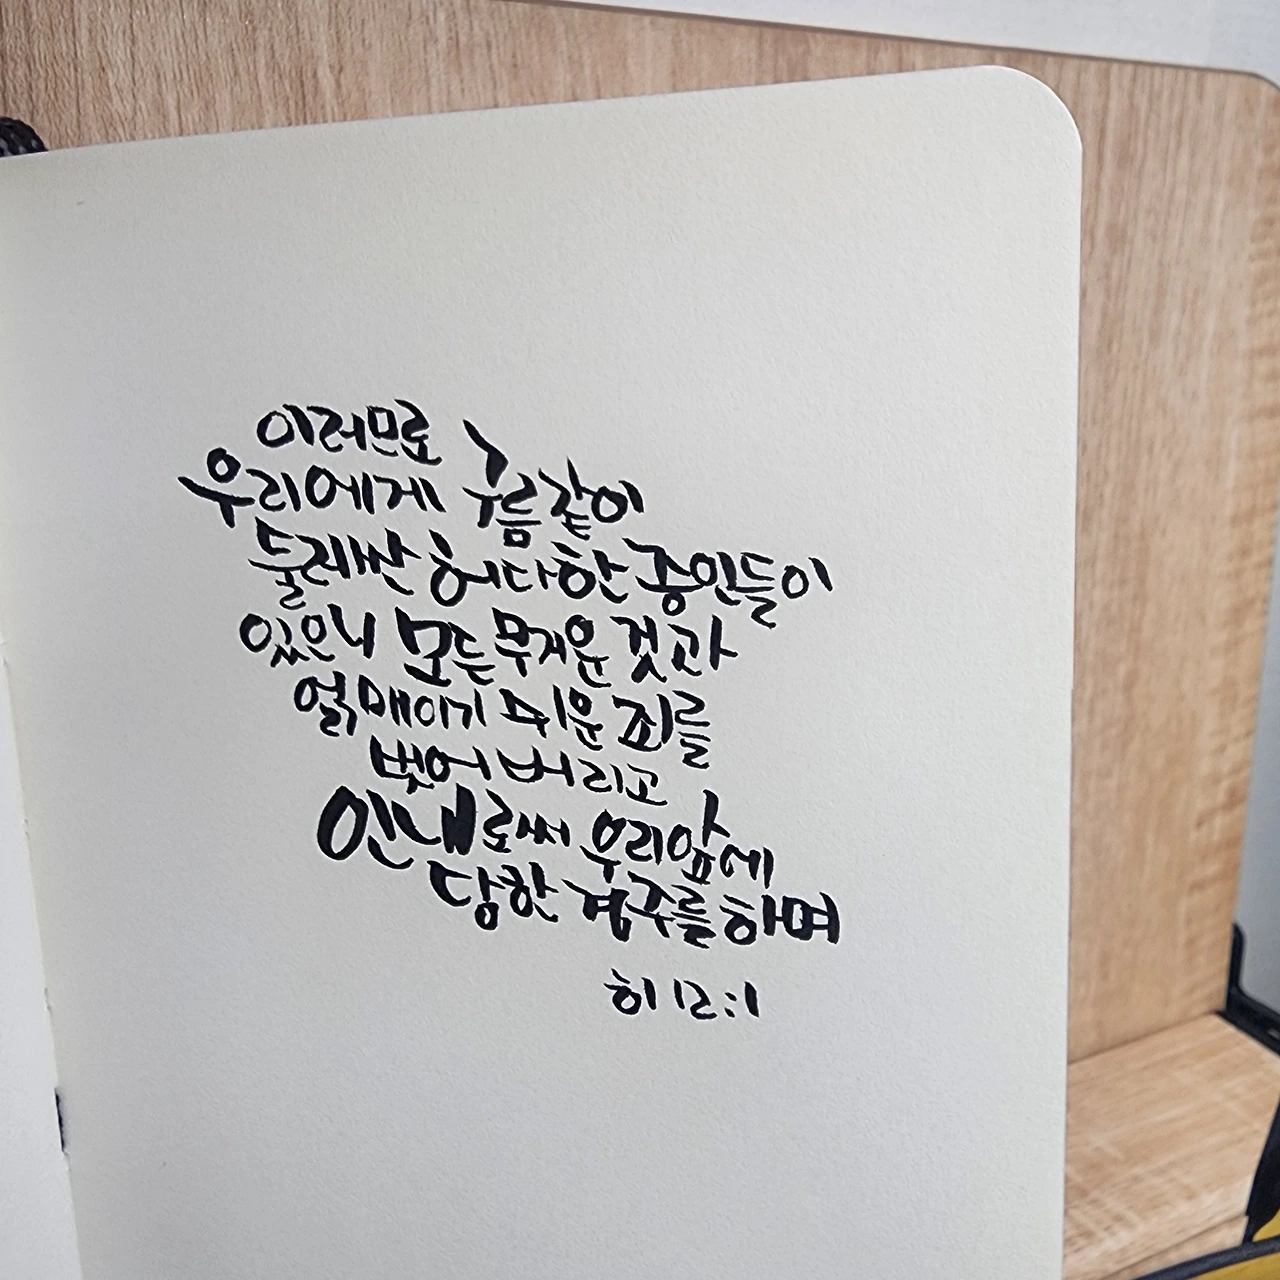 이러므로
우리에게 구름같이
둘러싼 허다한 증인들이
있으니 모든 무거운 것과
얽매이기 쉬운 죄를
벗어 버리고
인내로써 우리앞에
당한 경주를 하며
히 12:1